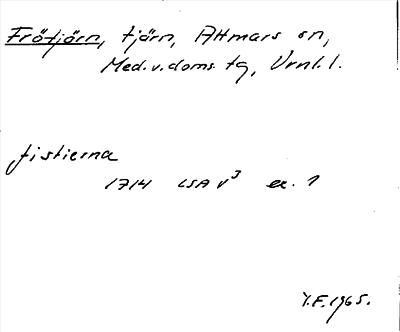 Frötjörn, tjärn, Attmars sn,
Med. v. doms. tg, Vrnl. l.
fistierna
1714 LSA V³ ex. 1
Y.F. 1965.